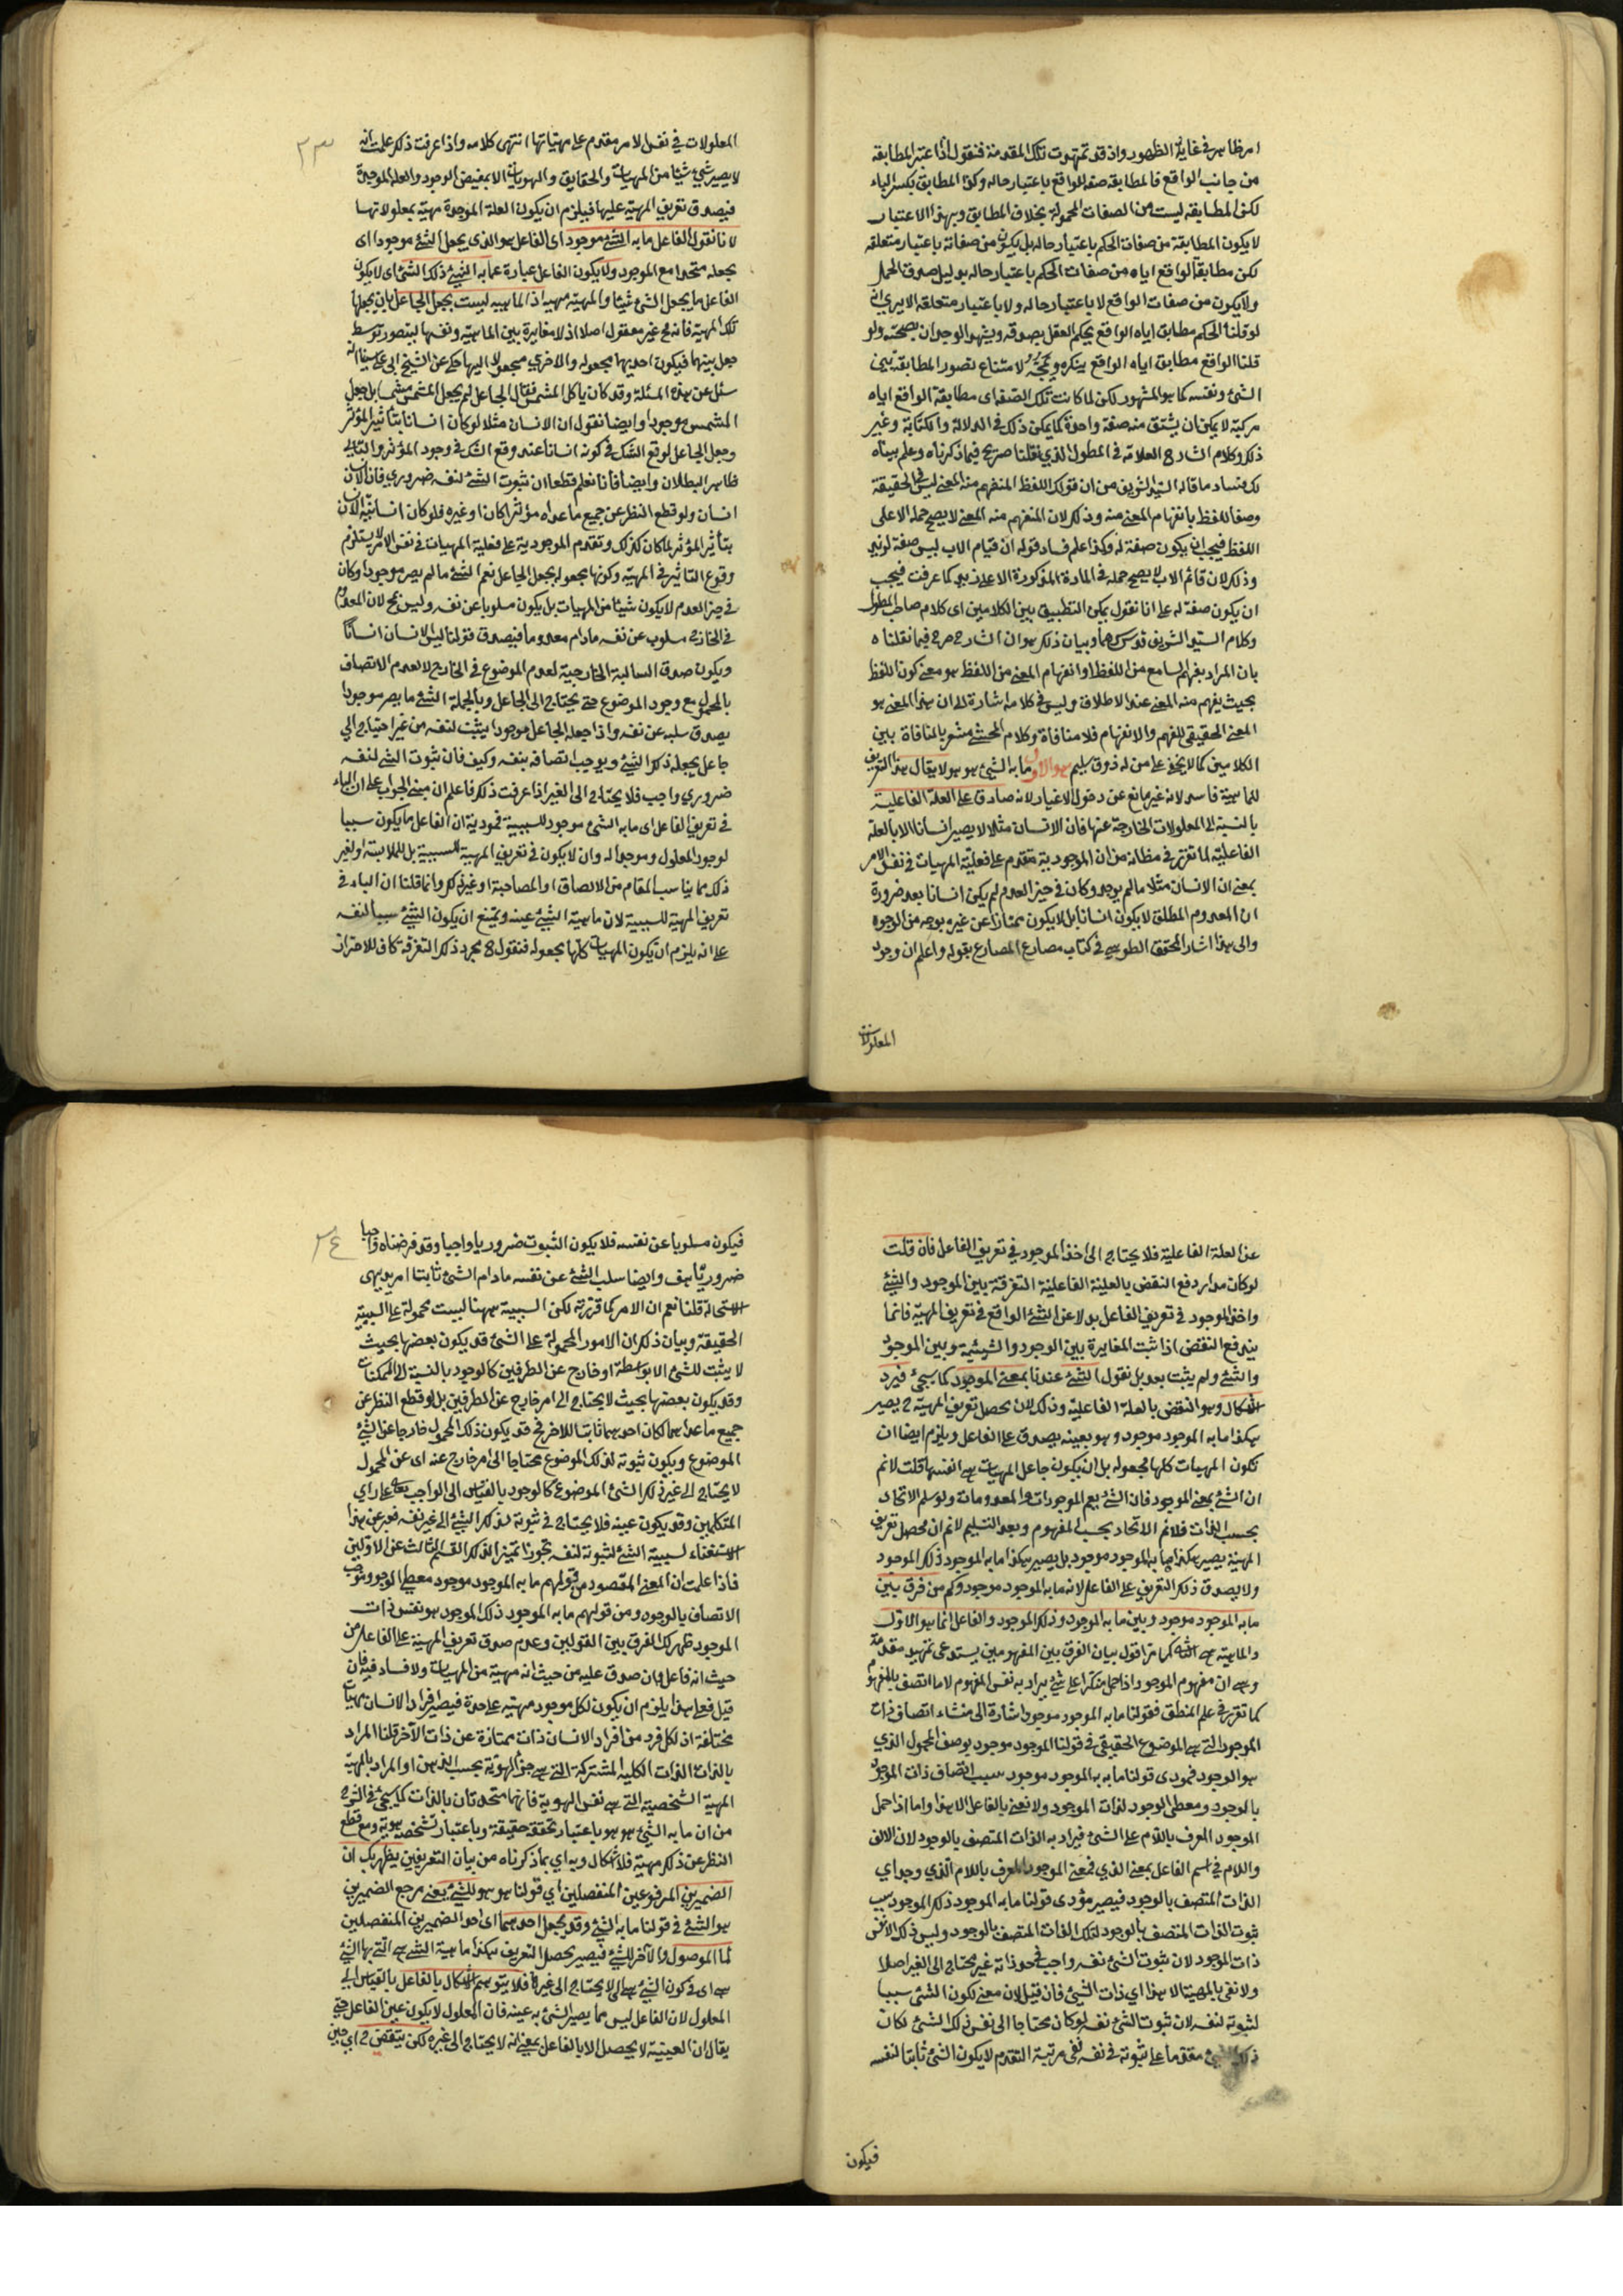 امر ظاهر في غاية الظهور واذ قد تمهدت تلك المقدمة فنقول اذا اعتبر المطابقة
من جانب الواقع فالمطابقة صفة للواقع باعتبار حاله وكذا المطابق بكسر الباء
لكن المطابقة ليست من الصفات المحمولة بخلاف المطابق وبهذا الاعتبار
لا يكون المطابقة من صفات الحكم باعتبار حاله بل يكون من صفاته باعتبار متعلقه
لكن مطابقة الواقع اياه من صفات الحكم باعتبار حاله بدليل صدق الحمل
ولا يكون من صفات الواقع لا باعتبار حاله ولا باعتبار متعلقه الا يرى انه
لو قلنا الحكم مطابق اياه الواقع يحكم العقل بصدقه ويشهد الوجدان بصحته ولو
قلنا الواقع مطابق اياه الواقع ينكره ويمجه لامتناع تصور المطابقة بين
الشئ ونفسه كما هو المشهور لكن لما كانت تلك الصفة اى مطابقة الواقع اياه
مركبة لا يمكن ان يشتق منه صفة واحدة كما يمكن ذلك في الدلالة والكتابة وغير
ذلك وكلام الشارح العلامة في المطول الذي نقلنا صريح فيما ذكرناه وعلم بيناه
لك فساد ما قاله السيد الشريف من ان قولك اللفظ المنفهم منه المعنى ليس في الحقيقة
وصفا للفظ بانفهام المعنى منه وذلك لان المنفهم منه المعنى لا يصح حمله الا على
اللفظ فيجب ان يكون صفة له وكذا علم فساد قوله ان قيام الاب ليس صفة لزيد
وذلك لان قائم الاب لا يصح حمله في المادة المذكورة الا على زيد كما عرفت فيجب
ان يكون صفة له على انا نقول يمكن التطبيق بين الكلامين اى كلام صاحب المطول
وكلام السيد الشريف قدس سرهما وبيان ذلك هو ان الشارح صرح فيما نقلناه
بان المراد بفهم السامع من اللفظ او انفهام المعنى من اللفظ هو معنى كون اللفظ
بحيث يفهم منه المعنى عند الاطلاق وليس في كلامه اشارة الى ان هذا المعنى هو
المعنى الحقيقي للفهم والانفهام فلا منافاة وكلام المحشى مشعر بالمنافاة بين
الكلامين كما لا يخفى على من له ذوق سليم هو الاول ما به الشئ هو هو لا يقال هذا التعريف
للماهية فاسد لانه غير مانع عن دخول الاغيار لانه صادق على العلة الفاعلية
بالنسبة الى المعلولات الخارجة عنها فان الانسان مثلا لا يصير انسانا الا بالعلة
الفاعلية لما تقرر في مظانه من ان الموجودية متقدم على فعلية المهيات في نفس الامر
بمعنى ان الانسان مثلا ما لم يوجد وكان في حيز العدم لم يكن انسانا بعد ضرورة
ان المعدوم المطلق لا يكون انسانا بل لا يكون ممتازا عن غيره بوجه من الوجوه
والى هذا اشار المحقق الطوسي في كتاب مصارع المصارع بقوله واعلم ان وجود
المعلولات
٢٣
المعلولات في نفس الامر مقدم على مهياتها انتهى كلامه واذا عرفت ذلك علمت انه
لا يصير شئ شيئا من المهيات والحقايق والهويات الا بمفيض الوجود والعلة الموجدة
فيصدق تعريف المهية عليها فيلزم ان يكون العلة الموجدة مهية بمعلولاتها
لانا نقول الفاعل ما به الشئ موجود اى الفاعل هو الذى يجعل الشئ موجودا اى
يجعله متحدا مع الموجود ولا يكون الفاعل عبارة عما به الشئ ذلك الشئ اى لا يكون
الفاعل ما يجعل الشئ شيئا والمهية مهية اذ الماهية ليست بجعل الجاعل بان يجعلها
تلك المهية فانه غير معقول اصلا اذ لا مغايرة بين الماهية ونفسها ليتصور توسط
جعل بينهما فيكون احديهما مجعولة والاخرى مجعولا اليها حكي عن الشيخ ابي علي سينا انه
سئل عن هذه المسئلة وقد كان ياكل المشمش فقال الجاعل لم يجعل المشمش مشمشا بل جعل
المشمس موجودا وايضا نقول ان الانسان مثلا لو كان انسانا بتاثير المؤثر
وجعل الجاعل لوقع الشك في كونه انسانا عند وقع الشك في وجود المؤثر والتالي
ظاهر البطلان وايضا فانا نعلم قطعا ان ثبوت الشئ لنفسه ضروري فان الانسان
انسان ولو قطع النظر عن جميع ما عداه مؤثرا كان او غيره فلو كان انسانية الانسان
بتاثير المؤثر لما كان كذلك وتقدم الموجودية على فعلية المهيات في نفس الامر لا يستلزم
وقوع التاثير في المهية وكونها مجعولة بجعل الجاعل نعم الشئ ما لم يصر موجودا وكان
في حيز العدم لا يكون شيئا من المهيات بل يكون مسلوبا عن نفسه وليس بمح لان المعدوم
في الخارج مسلوب عن نفسه مادام معدوما فيصدق قولنا ليس الانسان انسانا
ويكون صدق السالبة الخارجية لعدم الموضوع في الخارج لا لعدم الاتصاف
بالمحمول مع وجود الموضوع حتى يحتاج الى الجاعل وبالجملة الشئ ما يصر موجودا
يصدق سلبه عن نفسه واذا جعله الجاعل موجودا يثبت لنفسه من غير احتياج الى
جاعل يجعله ذلك الشئ ويوجب اتصافه بنفسه وكيف فان ثبوت الشئ لنفسه
ضروري واجب فلا يحتاج الى الغير اذا عرفت ذلك فاعلم ان مبنى الجواب على ان الباء
في تعريف الفاعل اى ما به الشئ موجود للسببية فمؤديه ان الفاعل ما يكون سببا
لوجود المعلول وموجدا له وان لا يكون في تعريف المهية للسببية بل للملابسة او لغير
ذلك مما يناسب المقام من الالصاق او المصاحبة او غير ذلك وانما قلنا ان الباء في
تعريف المهية للسببية لان ماهية الشئ عينه ويمتنع ان يكون الشئ سببا لنفسه
على انه يلزم ان يكون المهيات كلها مجعولة فنقول ح مجرد ذلك التفرقة كاف للاحتراز
عن العلة الفاعلية فلا يحتاج الى اخذ الموجود في تعريف الفاعل فان قلت
لو كان مدار دفع النقض بالعلية الفاعلية التفرقة بين الموجود والشئ
واخذ الموجود في تعريف الفاعل بدلا عن الشئ الواقع في تعريف المهية فانما
يندفع النقض اذا ثبت المغايرة بين الوجود والشيئية وبين الموجود
والشئ ولم يثبت بعد بل نقول الشئ عندنا بمعنى الموجود كما سيجئ فيرد
الاشكال وهو النقض بالعلة الفاعلية وذلك لان محصل تعريف المهية ح يصير
هكذا ما به الموجود موجود وهو بعينه يصدق على الفاعل ويلزم ايضا ان
تكون المهيات كلها مجعولة بل ان يكون جاعل المهيات هى انفسها قلت لا نم
ان الشئ بمعنى الموجود فان الشئ يعم الموجودات والمعدومات ولو سلم الاتحاد
بحسب الذات فلا نم الاتحاد بحسب المفهوم وبعد التسليم لا نم ان محصل تعريف
المهية يصير هكذا ما به الموجود موجود بل يصير هكذا ما به الموجود ذلك الموجود
ولا يصدق ذلك التعريف على الفاعل لانه ما به الموجود موجود وكم من فرق بين
ما به الموجود موجود وبين ما به الموجود وذلك الموجود والفاعل انما هو الاول
والماهية هى الثانى كما مر اقول بيان الفرق بين المفهومين يستدعى تمهيد مقدمة
وهى ان مفهوم الموجود اذا حمل منكرا على شئ يراد به نفس المفهوم لا ما اتصف بالمفهوم
كما تقرر في علم المنطق فقولنا ما به الموجود موجود اشارة الى منشاء اتصاف ذات
الموجود التى هى الموضوع الحقيقي في قولنا الموجود موجود بوصف المحمول الذي
هو الوجود فمودى قولنا ما به به الموجود موجود سبب اتصاف ذات الموجود
بالوجود ومعطى الوجود لذات الموجود ولا نعنى بالفاعل الا هذا واما اذا حمل
الموجود المعرف باللام على الشئ فيراد به الذات المتصف بالوجود لان الالف
واللام في اسم الفاعل بمعنى الذي فمعنى الموجود المعرف باللام الذي وجد اي
الذات المتصف بالوجود فيصير مؤدى قولنا ما به الموجود ذلك الموجود سبب
ثبوت الذات المتصف بالوجود لتلك الذات المتصف بالوجود وليس ذلك الا نفس
ذات الموجود لان ثبوت الشئ نفسه واجب في حد ذاته غير محتاج الى الغير اصلا
ولا نغنى بالمهية الا هذا اي ذات الشئ فان قيل لان معنى لكون الشئ سببا
لثبوته لنفسه لان ثبوت الشئ نفسه لو كان محتاجا الى نفس ذلك الشئ لكان
ذلك الشئ مقدما على ثبوته في نفسه ففى مرتبة التقدم لا يكون الشئ ثابتا لنفسه
فيكون
٢٤
فيكون مسلوبا عن نفسه فلا يكون الثبوت ضروريا واجبا وقد فرضناه واجبا
ضروريا هف وايضا سلب الشئ عن نفسه مادام الشئ ثابتا امر بديهى
الاستحالة قلنا نعم ان الامر كما قررته لكن السببية ههنا ليست محمولة على السببية
الحقيقة وبيان ذلك ان الامور المحمولة على الشئ قد يكون بعضها بحيث
لا يثبت للشئ الا بواسطة او خارج عن الطرفين كالوجود بالنسبة الى الممكنات
وقد يكون بعضها بحيث لا يحتاج الى امر خارج عن الطرفين بل لو قطع النظر عن
جميع ما عداهما لكان احدهما ثابتا للاخر فح قد يكون ذلك المحمول خارجا عن الشئ
الموضوع ويكون ثبوته لذلك الموضوع محتاجا الى امر خارج عنه اى عن المحمول
لا يحتاج الى غير ذلك الشئ الموضوع كالوجود بالقياس الى الواجب تعالى على راي
المتكلمين وقد يكون عينه فلا يحتاج في ثبوته لذلك الشئ الى غير نفسه فعبر عن هذا
الاستغناء لسببية الشئ لثبوته لنفسه تجوزا تميزا لذلك القسم الثالث عن الاولين
فاذا علمت ان المعنى المقصود من قولهم ما به الموجود موجود معطى الوجود وموجب
الاتصاف بالوجود ومن قولهم ما به الموجود ذلك الموجود هو نفس ذات
الموجود ظهر لك الفرق بين القولين وعدم صدق تعريف المهية على الفاعل من
حيث انه فاعل وان صدق عليه من حيث انه مهية من المهيات ولا فساد فيه فان
قيل فعلى هذا يلزم ان يكون لكل موجود مهية على حدة فيصير افراد الانسان مهيات
مختلفة اذ لكل فرد من افراد الانسان ذات ممتازة عن ذات الآخر قلنا المراد
بالذات الذات الكلية المشتركة التى هى جزء الهوية بحسب الذهن او المراد بالمهية
المهية الشخصية التى هى نفس الهوية فانهما متحدتان بالذات كما سيجئ في الشرح
من ان ما به الشئ هو هو باعتبار تحققه حقيقة وباعتبار تشخصه هوية ومع قطع
النظر عن ذلك مهية فلا اشكال وبه اي بما ذكرناه من بيان التعريفين يظهر لك ان
الضميرين المرفوعين المنفصلين اي قولنا هو هو للشئ يعنى مرجع الضميرين
هو الشئ في قولنا ما به الشئ وقد يجعل احدهما اى احد الضميرين المنفصلين
لما الموصول والآخر للشئ فيصير محصل التعريف هكذا ماهية الشئ هى التى بها الشئ
هى اى في كون الشئ هى الى لا يحتاج الى غيرها فلا يتوهم الاشكال بالفاعل بالقياس الى
المعلول لان الفاعل ليس مما يصير الشئ به عينه فان المعلول لا يكون عين الفاعل حتى
يقال ان العينية لا يحصل الا بالفاعل بمعنى انه لا يحتاج الى غيره لكن ينتقض ح اي حين